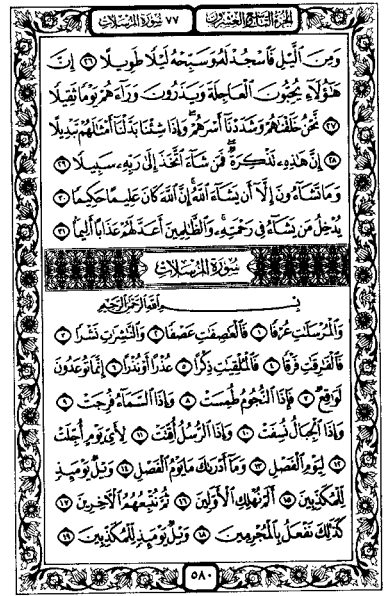 الجزء التاسع والعشرون
٧٧ سورة المرسلات
وَمِنَ الَّيْلِ فَاسْجُدْ لَهُ وَسَبِّحْهُ لَيْلًا طَوِيلًا ٢٦ إِنَّ
هَٰؤُلَاءِ يُحِبُّونَ الْعَاجِلَةَ وَيَذَرُونَ وَرَاءَهُمْ يَوْمًا ثَقِيلًا
٢٧ نَّحْنُ خَلَقْنَاهُمْ وَشَدَدْنَا أَسْرَهُمْ وَإِذَا شِئْنَا بَدَّلْنَا أَمْثَالَهُمْ تَبْدِيلًا
٢٨ إِنَّ هَٰذِهِ تَذْكِرَةٌ فَمَن شَاءَ اتَّخَذَ إِلَىٰ رَبِّهِ سَبِيلًا ٢٩
وَمَا تَشَاءُونَ إِلَّا أَن يَشَاءَ اللَّهُ إِنَّ اللَّهَ كَانَ عَلِيمًا حَكِيمًا ٣٠
يُدْخِلُ مَن يَشَاءُ فِي رَحْمَتِهِ وَالظَّالِمِينَ أَعَدَّ لَهُمْ عَذَابًا أَلِيمًا ٣١
سورة المرسلات
بِسْمِ اللَّهِ الرَّحْمَٰنِ الرَّحِيمِ
وَالْمُرْسَلَاتِ عُرْفًا ١ فَالْعَاصِفَاتِ عَصْفًا ٢ وَالنَّاشِرَاتِ نَشْرًا ٣
فَالْفَارِقَاتِ فَرْقًا ٤ فَالْمُلْقِيَاتِ ذِكْرًا ٥ عُذْرًا أَوْ نُذْرًا ٦ إِنَّمَا تُوعَدُونَ
لَوَاقِعٌ ٧ فَإِذَا النُّجُومُ طُمِسَتْ ٨ وَإِذَا السَّمَاءُ فُرِجَتْ ٩
وَإِذَا الْجِبَالُ نُسِفَتْ ١٠ وَإِذَا الرُّسُلُ أُقِّتَتْ ١١ لِأَيِّ يَوْمٍ أُجِّلَتْ
١٢ لِيَوْمِ الْفَصْلِ ١٣ وَمَا أَدْرَاكَ مَا يَوْمُ الْفَصْلِ ١٤ وَيْلٌ يَوْمَئِذٍ
لِّلْمُكَذِّبِينَ ١٥ أَلَمْ نُهْلِكِ الْأَوَّلِينَ ١٦ ثُمَّ نُتْبِعُهُمُ الْآخِرِينَ ١٧
كَذَٰلِكَ نَفْعَلُ بِالْمُجْرِمِينَ ١٨ وَيْلٌ يَوْمَئِذٍ لِّلْمُكَذِّبِينَ ١٩
٥٨٠